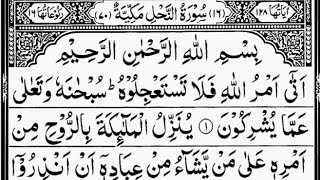 اٰیَاتُهَا ١٢٨ (١٦) سُوْرَةُ النَّحْلِ مَكِّيَّةٌ (٧٠) رُكُوْعَاتُهَا ١٦
بِسْمِ اللّٰهِ الرَّحْمٰنِ الرَّحِيْمِ
اَتٰۤى اَمْرُ اللّٰهِ فَلَا تَسْتَعْجِلُوْهُ ؕ سُبْحٰنَهٗ وَتَعٰلٰى
عَمَّا يُشْرِكُوْنَ ١ يُنَزِّلُ الْمَلٰٓئِكَةَ بِالرُّوْحِ مِنْ
اَمْرِهٖ عَلٰى مَنْ يَّشَآءُ مِنْ عِبَادِهٖۤ اَنْ اَنْذِرُوْۤا